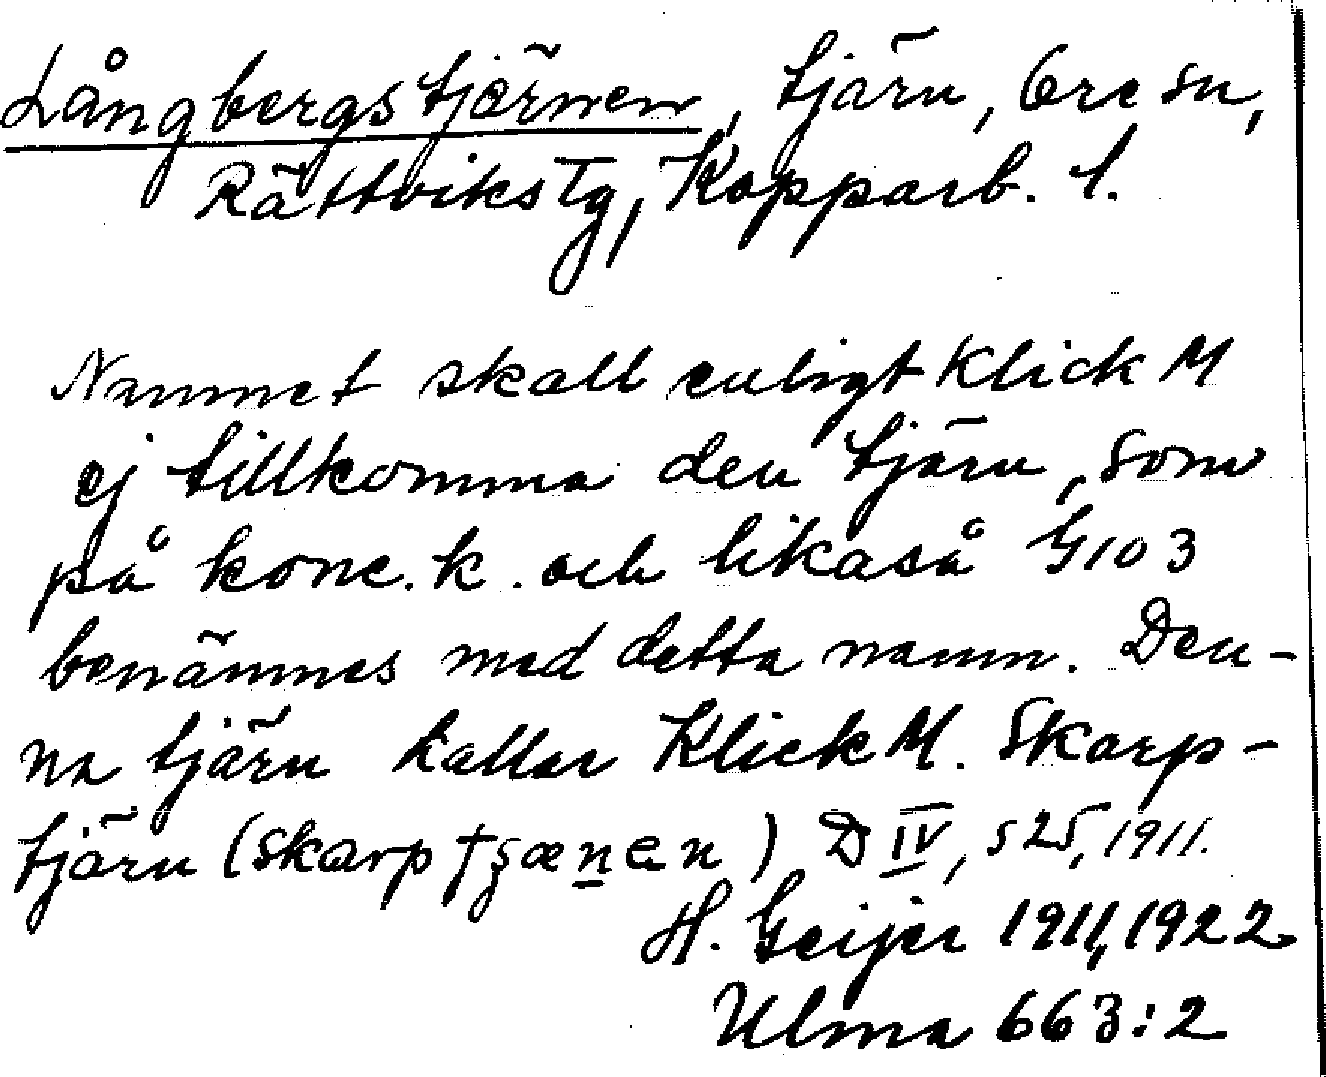 Långbergstjärnen, tjärn, Ore sn,
Rättviks tg, Kopparb. l.
Namnet skall enligt Klick M
ej tillkomma den tjärn, som
på konc. k. och likaså G 103
benämnes med detta namn. Den-
na tjärn kallar Klick M. Skarp-
tjärn (skarp tʒænen) D IV, s 25, 1911.
H. Geijer 1911, 1922
Ulma 663:2